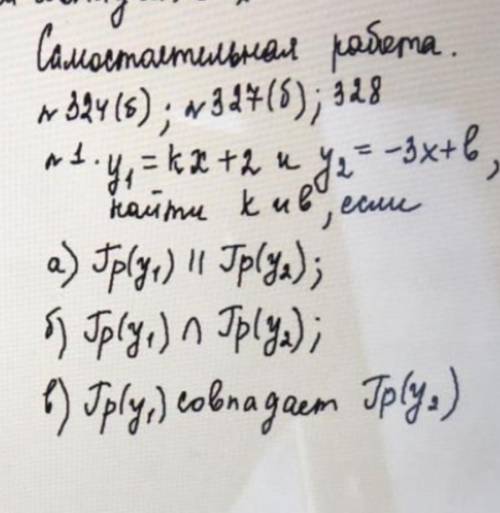 Самостоятельная работа.
№324(б); №327(б); 328
№1. y₁ = kx + 2 и y₂ = -3x + b,
найти k и b, если
а) Гр(y₁) || Гр(y₂);
б) Гр(y₁) ∩ Гр(y₂);
в) Гр(y₁) совпадает Гр(y₂)